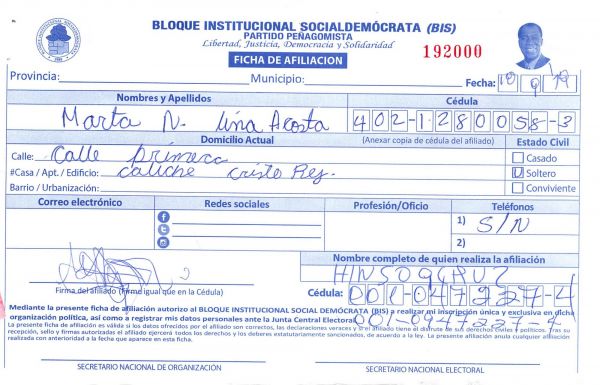 BLOQUE INSTITUCIONAL SOCIALDEMÓCRATA (BIS)
PARTIDO PEÑAGOMISTA
Libertad, Justicia, Democracia y Solidaridad
192000
FICHA DE AFILIACION
Provincia: Municipio: Fecha: 10 9 19
Nombres y Apellidos Cédula
Marta N. Lina Acosta 402-1280058-3
Domicilio Actual (Anexar copia de cédula del afiliado) Estado Civil
Calle: Calle primera Casado
#Casa / Apt. / Edificio: caliche cristo Rey. Soltero
Barrio / Urbanización: Conviviente
Correo electrónico Redes sociales Profesión/Oficio Teléfonos
1) S/N
2)
Nombre completo de quien realiza la afiliación
Firma del afiliado (Firme igual que en la Cédula)
Cédula: 001-047227-4
Mediante la presente ficha de afiliación autorizo al BLOQUE INSTITUCIONAL SOCIAL DEMÓCRATA (BIS) a realizar mi inscripción única y exclusiva en dicha
organización política, así como a registrar mis datos personales ante la Junta Central Electoral. 001-0947227-4
La presente ficha de afiliación es válida si los datos ofrecidos por el afiliado son correctos, las declaraciones veraces y si el afiliado tiene el disfrute de sus derechos civiles y políticos. Tras su
recepción, sello y firmas autorizadas el afiliado ejercerá todos los derechos y los deberes estatutariamente sancionados, de acuerdo a la ley. La presente afiliación anula cualquier afiliación
realizada con anterioridad a la fecha que aparece en esta ficha.
SECRETARIO NACIONAL DE ORGANIZACIÓN SECRETARIO NACIONAL ELECTORAL